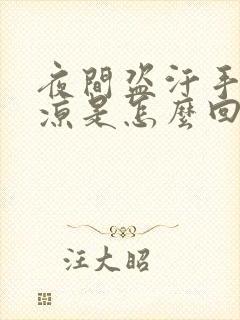 夜間盜汗手
涼是怎麼回
汪大昭